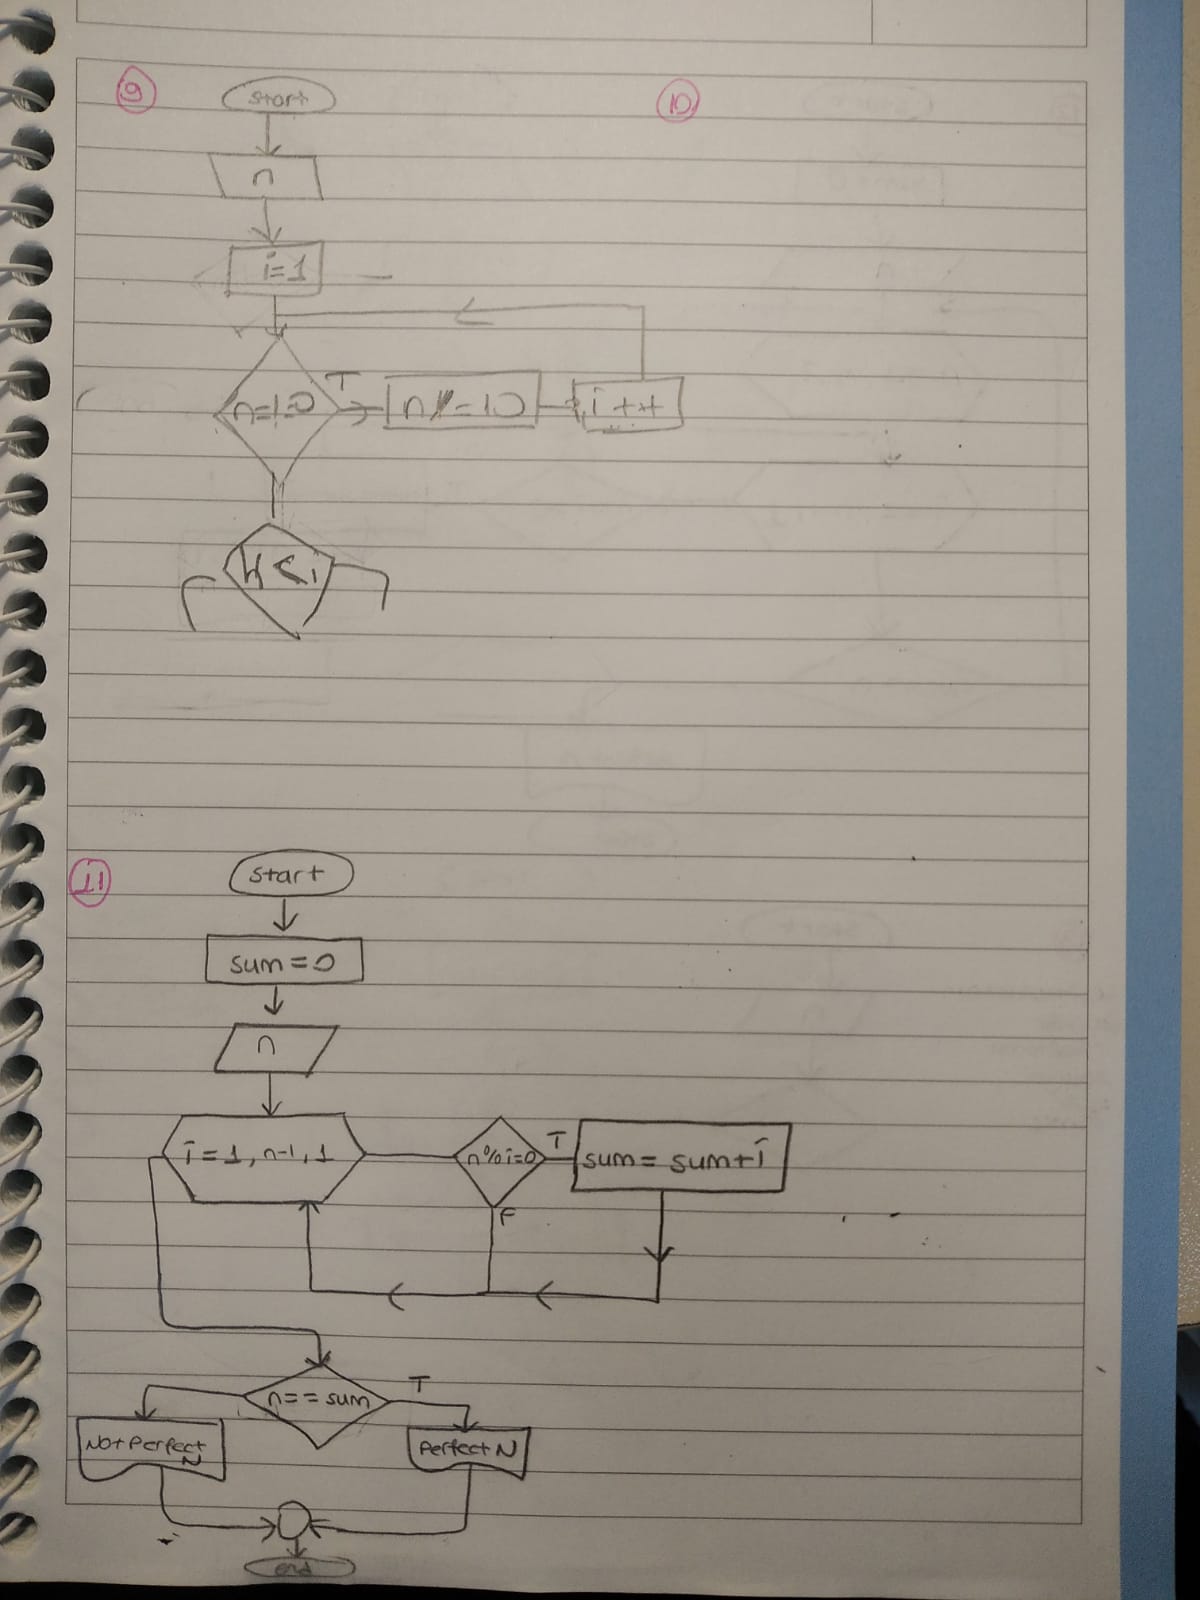 9
start
n
i=1
n=!=0
T
n/=10
i++
k<i
10
11
start
sum=0
n
i=1,n-1,1
n%i=0
T
sum= sum+i
F
n==sum
T
Not Perfect
N
Perfect N
end